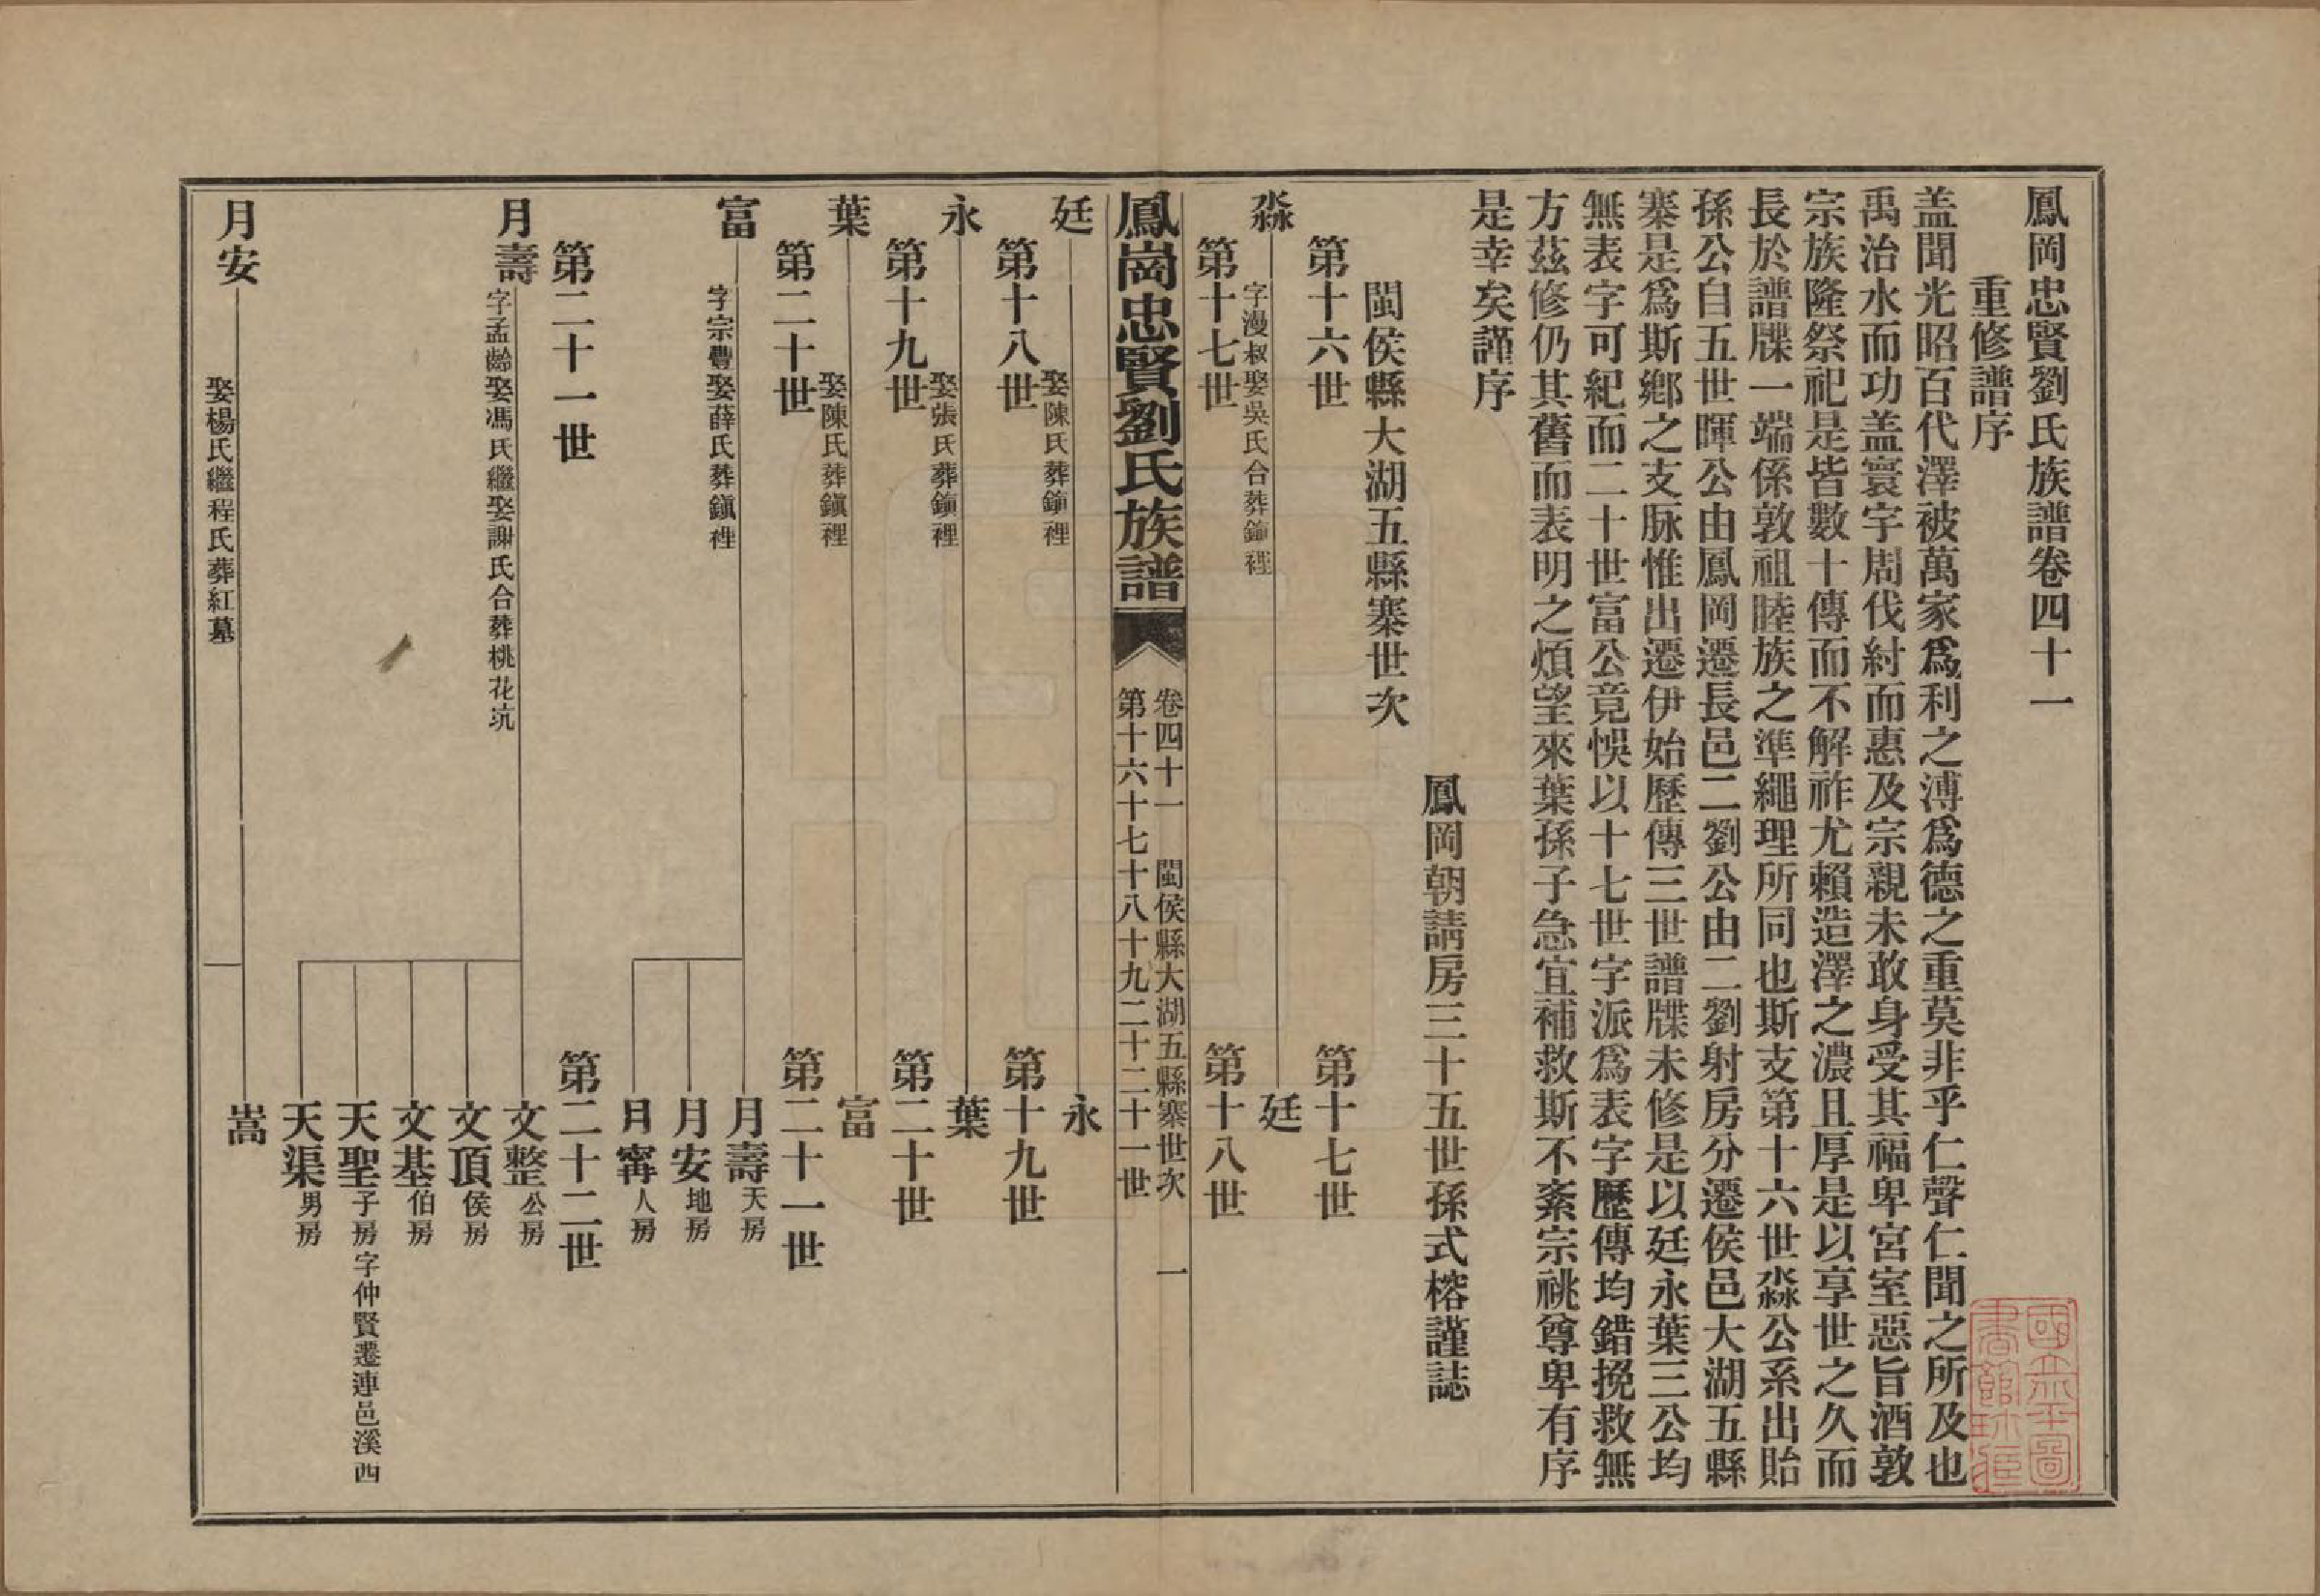 鳳岡忠賢劉氏族譜卷四十一
重修譜序
盖聞光昭百代澤被萬家爲利之溥爲德之重莫非乎仁聲仁聞之所及也
禹治水而功盖寰宇周伐紂而惠及宗親未敢身受其福卑宮室惡旨酒敦
宗族隆祭祀是皆數十傳而不解祚尤賴造澤之濃且厚是以享世之久而
長於譜牒一端係敦祖睦族之準繩理所同也斯支第十六世淼公系出貽
孫公自五世暉公由鳳岡遷長邑二劉公由二劉射房分遷侯邑大湖五縣
寨是爲斯鄉之支脉惟出遷伊始歷傳三世譜牒未修是以廷永葉三公均
無表字可紀而二十世富公竟悞以十七世字派爲表字歷傳均錯挽救無
方茲修仍其舊而表明之煩望來葉孫子急宜補救斯不紊宗祧尊卑有序
是幸矣謹序
鳳岡朝請房三十五世孫式榕謹誌
閩侯縣大湖五縣寨世次
第十六世
第十七世
淼
字漫叔娶吳氏合葬鎮裡
廷
第十七世
第十八世
鳳崗忠賢劉氏族譜
卷四十一 閩侯縣大湖五縣寨世次 一
第十六十七十八十九二十二十一世
廷
娶陳氏葬鎮裡
永
第十八世
第十九世
永
娶張氏葬鎮裡
葉
第十九世
第二十世
葉
娶陳氏葬鎮裡
富
第二十世
第二十一世
富
字宗豐娶薛氏葬鎮裡
月壽天房
月安地房
月寗人房
第二十一世
第二十二世
月壽
字孟齡娶馮氏繼娶謝氏合葬桃花坑
文整公房
文頂侯房
文基伯房
天聖子房字仲賢遷連邑溪西
天渠男房
月安
娶楊氏繼程氏葬紅墓
嵩
國立北平圖
書館珍藏